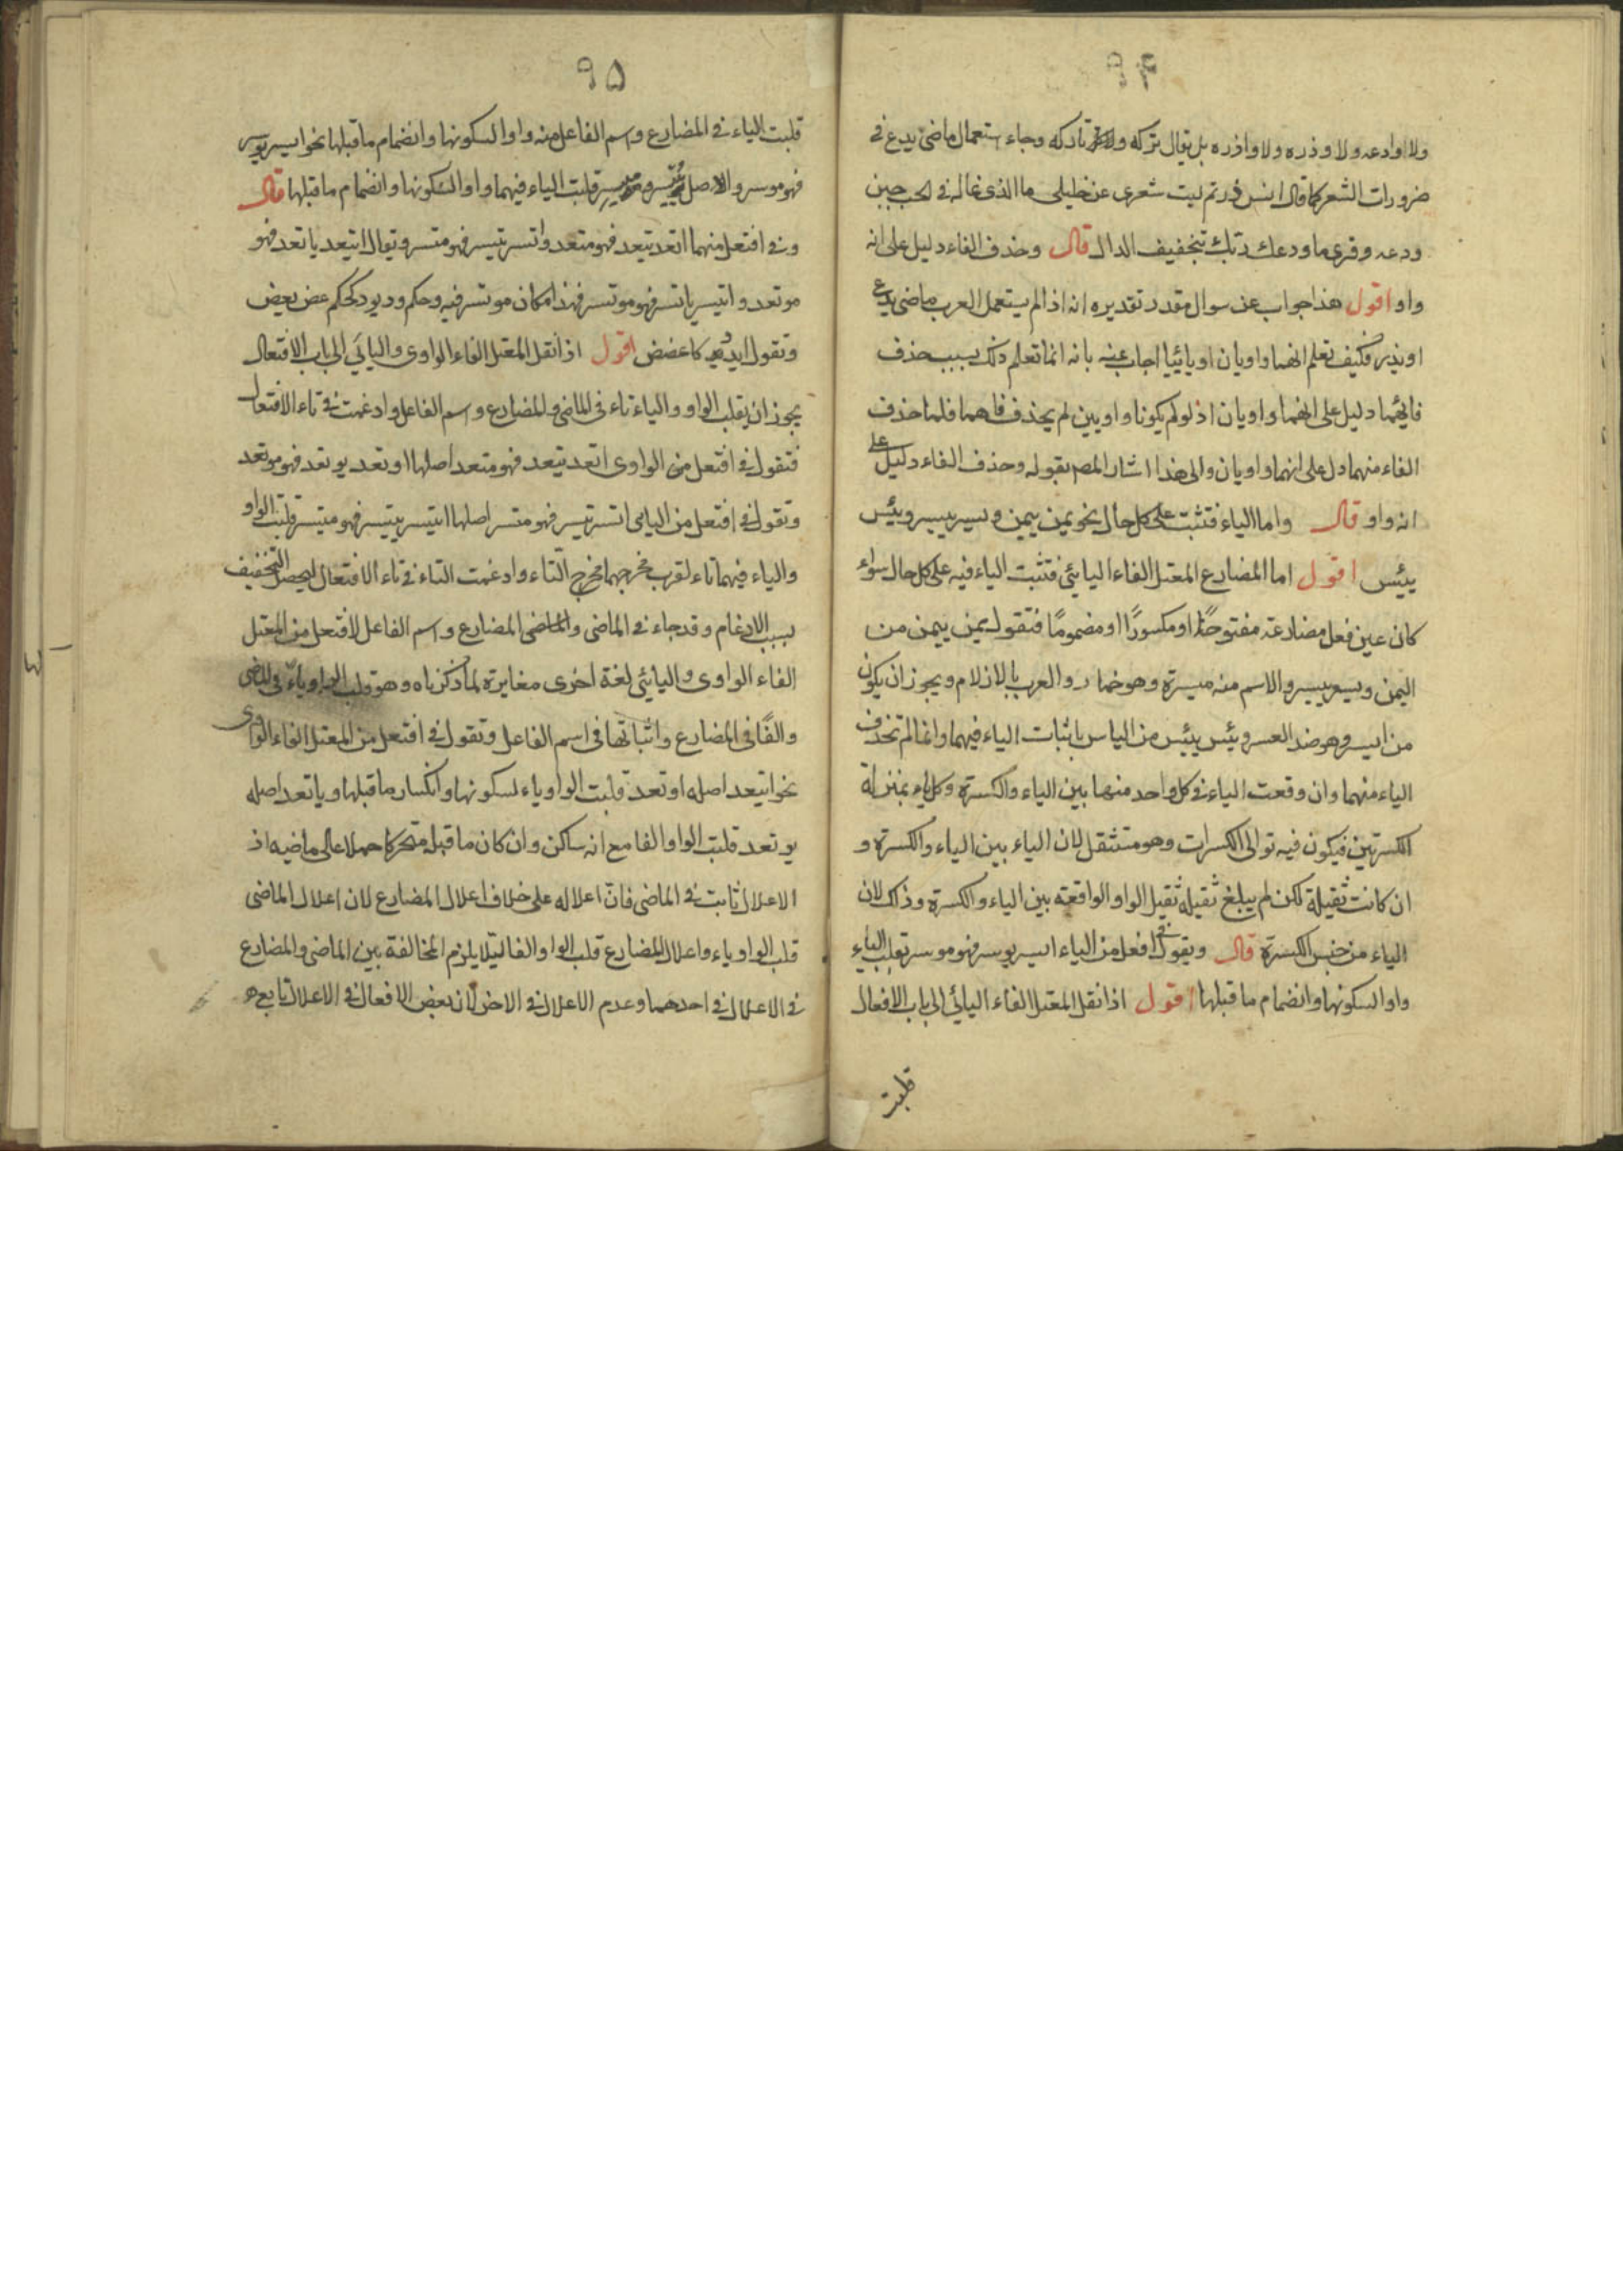 ولا اودعه ولا وذره ولا واذره بل يقال تركه ولا تاركه وجاء استعمال ماضى يدع فى
ضرورات الشعر كما قال انس ليت شعرى عن خليلى ما الذى غاله فى الحب حين
ودعه وقرى ما ودعك ربك بتخفيف الدال قال وحذف الفاء دليل على انه
واو اقول هذا جواب عن سوال مقدر تقديره انه اذا لم يستعمل العرب ماضى يدع
او يذر فكيف تعلم انهما واويان او يائيا اجاب عنه بانه انما تعلم ذلك بسبب حذف
فائهما دليل على انهما واويان اذ لو لم يكونا واويين لم يحذف فاهما فلما حذف
الفاء منهما دل على انهما واويان والى هذا اشار المصـ بقوله وحذف الفاء دليل على
انه واو قال واما الياء فتثبت على كل حال نحو يمن ييمن ويسر ييسر ويئس
ييئس اقول اما المضارع المعتل الفاء اليائى فتثبت الياء فيه على كل حال سواء
كان عين فعل مضارعه مفتوحًا او مكسورًا او مضمومًا فتقول يمن ييمن من
اليمن ويسر ييسر والاسم منه ميسرة وهو خمار والعرب بالازلام ويجوز ان يكون
من ايسر وهو ضد العسر ويئس ييئس من الياس باثبات الياء فيهما وانما لم تحذف
الياء منهما وان وقعت الياء فى كل واحد منهما بين الياء والكسرة وكل ياء بمنزلة
الكسرتين فيكون فيه توالى الكسرات وهو مستثقل لان الياء بين الياء والكسرة و
ان كانت ثقيلة لكن لم يبلغ ثقيلة ثقيل الواو الواقعة بين الياء والكسرة وذلك لان
الياء من جنس الكسرة قال ويقول فى افعل من الياء ايسر يوسر فهو موسر تقلب الياء
واوا لسكونها وانضمام ما قبلها اقول اذا نقل المعتل الفاء اليائى الى باب الافعال
قلبت
٩٥
قلبت الياء فى المضارع واسم الفاعل منه واوا لسكونها وانضمام ما قبلها نحو ايسر يوسر
فهو موسر والاصل ييسر وميسر قلبت الياء فيهما واوا لسكونها وانضمام ما قبلها قال
وفى افتعل منهما اتعد يتعد فهو متعد واتسر يتسر فهو متسر ويقال ايتعد ياتعد فهو
موتعد وايتسر ياتسر فهو موتسر فهذا مكان موتسر فيه وحكم ود يود كحكم عض يعض
وتقول ايدد كاعضض اقول اذا نقل المعتل الفاء الواوى واليائى الى باب الافتعال
يجوز ان يقلب الواو والياء تاء فى الماضى والمضارع واسم الفاعل وادغمت فى تاء الافتعال
فتقول فى افتعل من الواوى اتعد يتعد فهو متعد اصلها اوتعد يوتعد فهو موتعد
وتقول فى افتعل من اليائى اتسر يتسر فهو متسر اصلها ايتسر ييتسر فهو ميتسر قلبت الواو
والياء فيهما تاء لقرب مخرجهما مخرج التاء وادغمت التاء فى تاء الافتعال ليحصل التخفيف
بسبب الادغام وقد جاء فى الماضى والماضى المضارع واسم الفاعل لافتعل من المعتل
الفاء الواوى واليائى لغة اخرى مغايرة لما ذكرناه وهو قلب الواو ياء فى الماضى
والفًا فى المضارع واثباتها فى اسم الفاعل وتقول فى افتعل من المعتل الفاء الواوى
نحو ايتعد اصله اوتعد قلبت الواو ياء لسكونها وانكسار ما قبلها وياتعد اصله
يوتعد قلبت الواو الفا مع انه ساكن وان كان ما قبله متحركا حملا على ماضيه اذ
الاعلال ثابت فى الماضى فان اعلاله على خلاف اعلال المضارع لان اعلال الماضى
قلب الواو ياء واعلال المضارع قلب الواو الفا ليلا يلزم المخالفة بين الماضى والمضارع
فى الاعلال فى احدهما وعدم الاعلال فى الاخر لان بعض الافعال فى الاعلال تابع